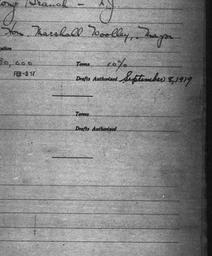 ong Branch - NJ
Hon. Marshall Woolley, Mayor
30,000 Terms 10%
FEB - 21
Drafts Authorized September 8, 1919
Terms
Drafts Authorized